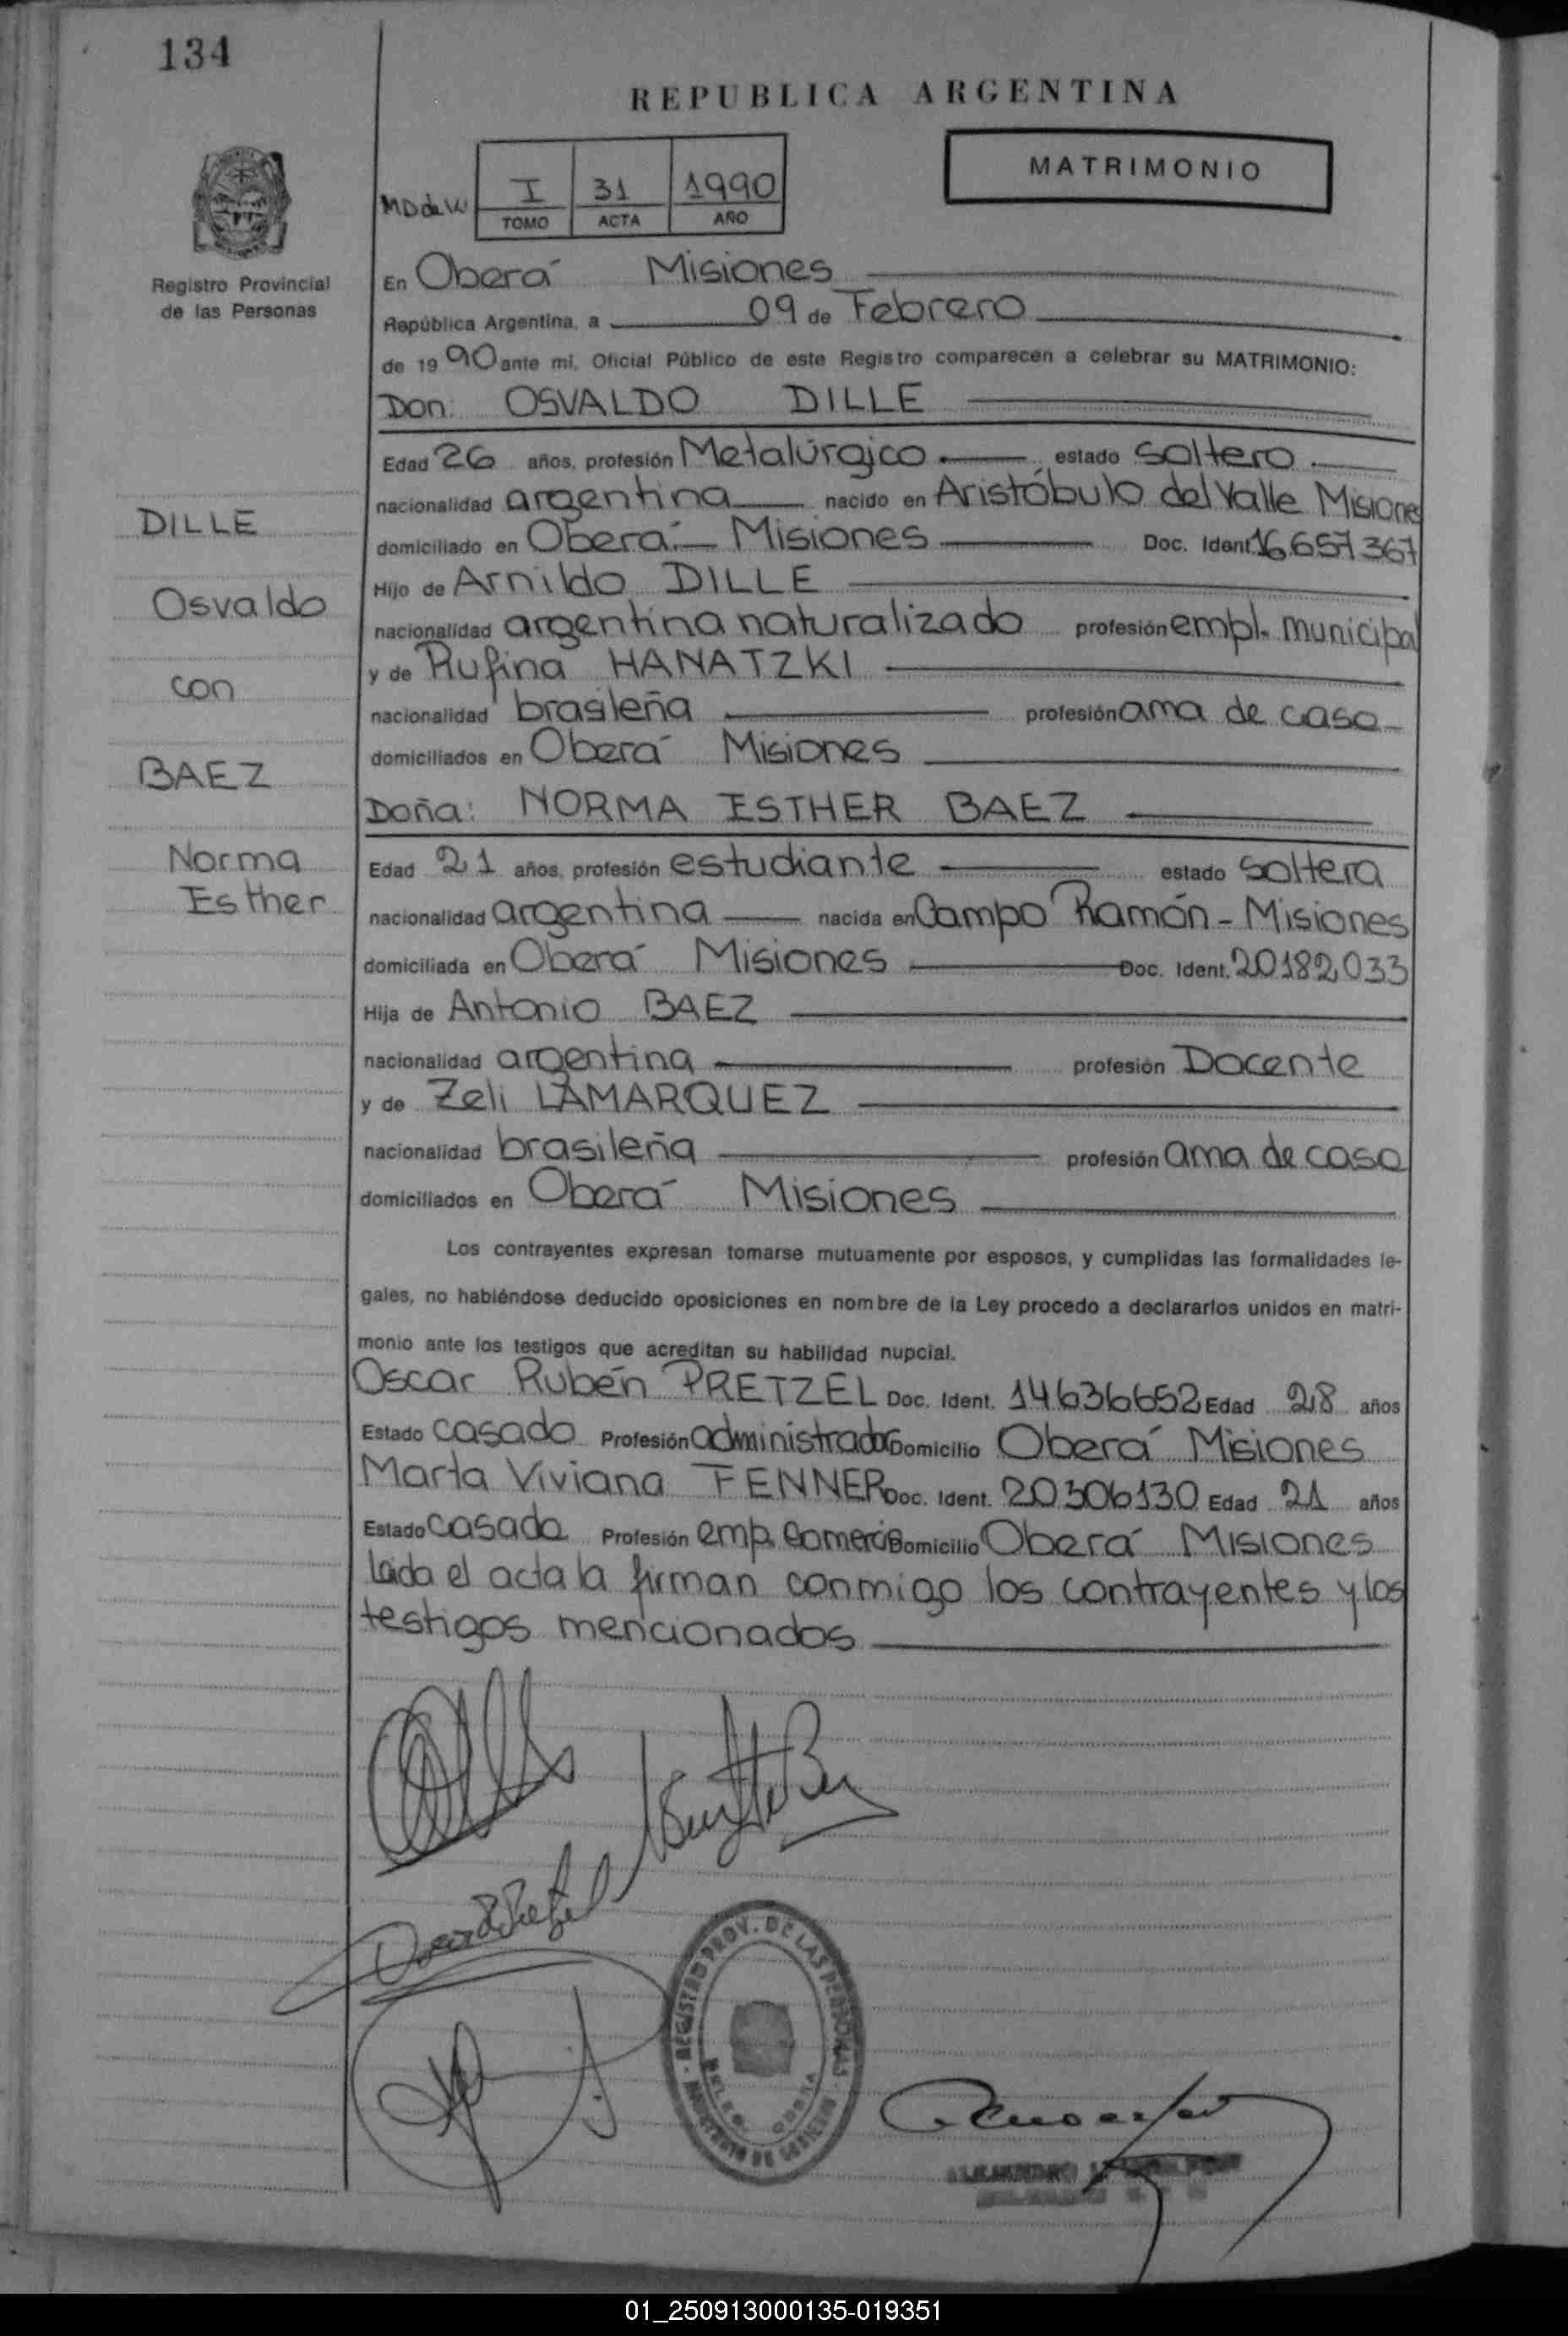 134
REPUBLICA ARGENTINA
MATRIMONIO
MD de W
I 31 1990
TOMO ACTA AÑO
Registro Provincial
de las Personas
En Oberá Misiones
República Argentina, a 09 de Febrero
de 1990 ante mi, Oficial Público de este Registro comparecen a celebrar su MATRIMONIO:
Don: OSVALDO DILLE
Edad 26 años, profesión Metalúrgico estado soltero
nacionalidad argentina nacido en Aristóbulo del Valle Misiones
domiciliado en Oberá - Misiones Doc. Ident. 16.657.367
Hijo de Arnildo DILLE
nacionalidad argentina naturalizado profesión empl. municipal
y de Rufina HANATZKI
nacionalidad brasileña profesión ama de casa
domiciliados en Oberá Misiones
DILLE
Osvaldo
con
BAEZ
Norma
Esther
Doña: NORMA ESTHER BAEZ
Edad 21 años, profesión estudiante estado soltera
nacionalidad argentina nacida en Campo Ramón - Misiones
domiciliada en Oberá Misiones Doc. Ident. 20.182.033
Hija de Antonio BAEZ
nacionalidad argentina profesión Docente
y de Zeli LAMARQUEZ
nacionalidad brasileña profesión ama de casa
domiciliados en Oberá Misiones
Los contrayentes expresan tomarse mutuamente por esposos, y cumplidas las formalidades le-
gales, no habiéndose deducido oposiciones en nombre de la Ley procedo a declararlos unidos en matri-
monio ante los testigos que acreditan su habilidad nupcial.
Oscar Rubén PRETZEL Doc. Ident. 14636652 Edad 28 años
Estado casado Profesión administrador Domicilio Oberá Misiones
Marta Viviana FENNER Doc. Ident. 20306130 Edad 21 años
Estado casada Profesión emp. Comercio Domicilio Oberá Misiones
Leída el acta la firman conmigo los contrayentes y los
testigos mencionados
REGISTRO PROV. DE LAS PERSONAS
MINISTERIO DE GOBIERNO
DELEG. OBERA
ALEJANDRO
01_250913000135-019351